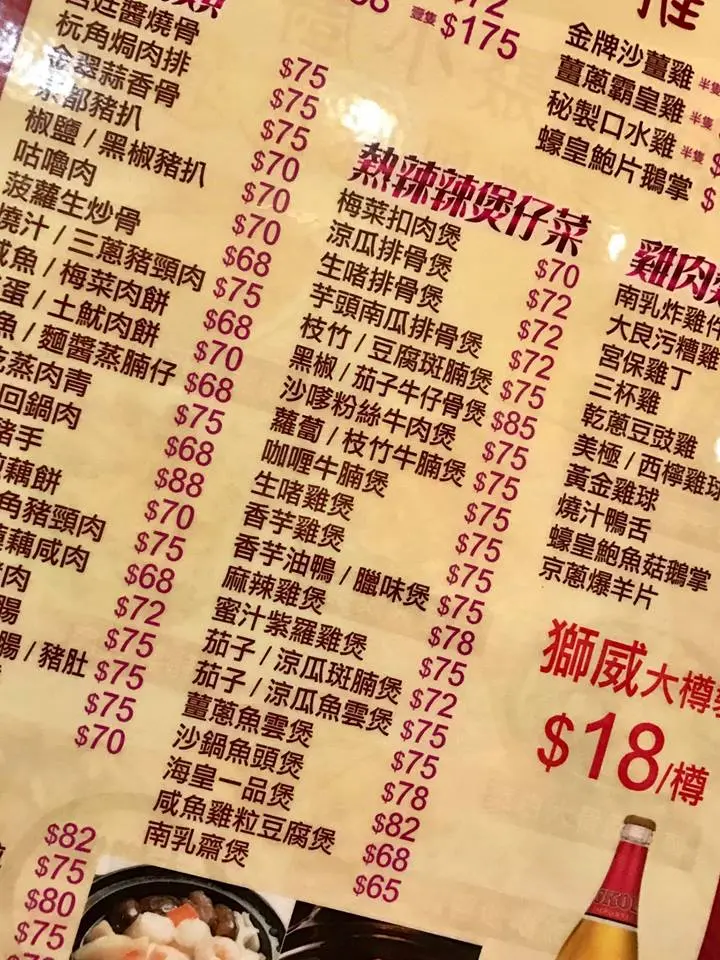 宮廷醬燒骨 $75
杬角焗肉排 $75
金翠蒜香骨 $75
京都豬扒 $70
椒鹽 / 黑椒豬扒 $70
咕嚕肉 $70
菠蘿生炒骨 $68
燒汁 / 三蔥豬頸肉 $75
咸魚 / 梅菜肉餅 $68
蛋 / 土魷肉餅 $70
魚 / 麵醬蒸腩仔 $68
蒸肉青 $75
回鍋肉 $68
豬手 $88
藕餅 $70
角豬頸肉 $75
藕咸肉 $68
肉 $72
腸 $75
腸 / 豬肚 $75
$75
$70
$82
$75
$80
$75
$72
壹隻 $175
熱辣辣煲仔菜
梅菜扣肉煲 $70
涼瓜排骨煲 $72
生啫排骨煲 $72
芋頭南瓜排骨煲 $72
枝竹 / 豆腐斑腩煲 $75
黑椒 / 茄子牛仔骨煲 $85
沙嗲粉絲牛肉煲 $75
蘿蔔 / 枝竹牛腩煲 $75
咖喱牛腩煲 $75
生啫雞煲 $75
香芋雞煲 $75
香芋油鴨 / 臘味煲 $75
麻辣雞煲 $78
蜜汁紫羅雞煲 $75
茄子 / 涼瓜斑腩煲 $72
茄子 / 涼瓜魚雲煲 $75
薑蔥魚雲煲 $75
沙鍋魚頭煲 $78
海皇一品煲 $82
咸魚雞粒豆腐煲 $68
南乳齋煲 $65
金牌沙薑雞 半隻
薑蔥霸皇雞 半隻
秘製口水雞 半隻 $
蠔皇鮑片鵝掌 $
雞肉
南乳炸雞件
大良污糟雞
宮保雞丁
三杯雞
乾蔥豆豉雞
美極 / 西檸雞球
黃金雞球
燒汁鴨舌
蠔皇鮑魚菇鵝掌
京蔥爆羊片
獅威大樽
$18/樽
SKOL